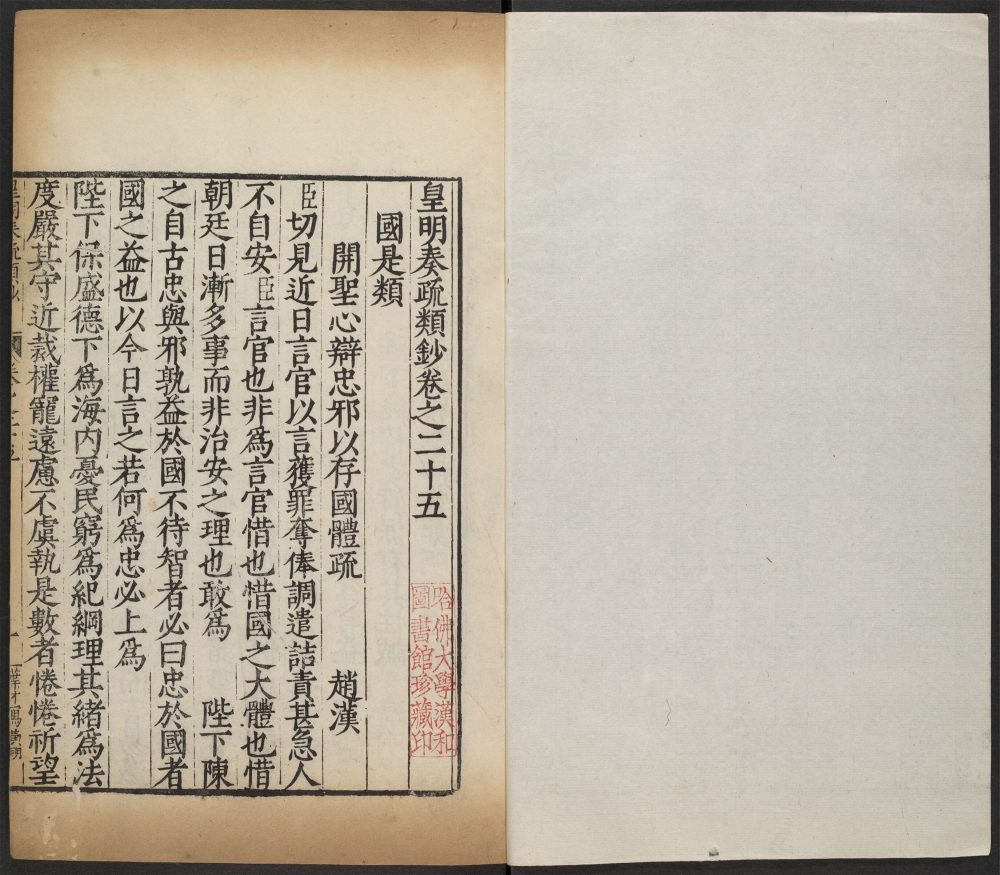 皇明奏疏類鈔卷之二十五
國是類
開聖心辯忠邪以存國體疏 趙漢
臣切見近日言官以言獲罪奪俸調遣詰責甚急人
不自安臣言官也非爲言官惜也惜國之大體也惜
朝廷日漸多事而非治安之理也敢爲 陛下陳
之自古忠與邪孰益於國不待智者必曰忠於國者
國之益也以今日言之若何爲忠必上爲
陛下保盛德下爲海内憂民窮爲紀綱理其緒爲法
度嚴其守近裁權寵遠慮不虞執是數者惓惓祈望
哈佛大學漢和
圖書館珍藏印